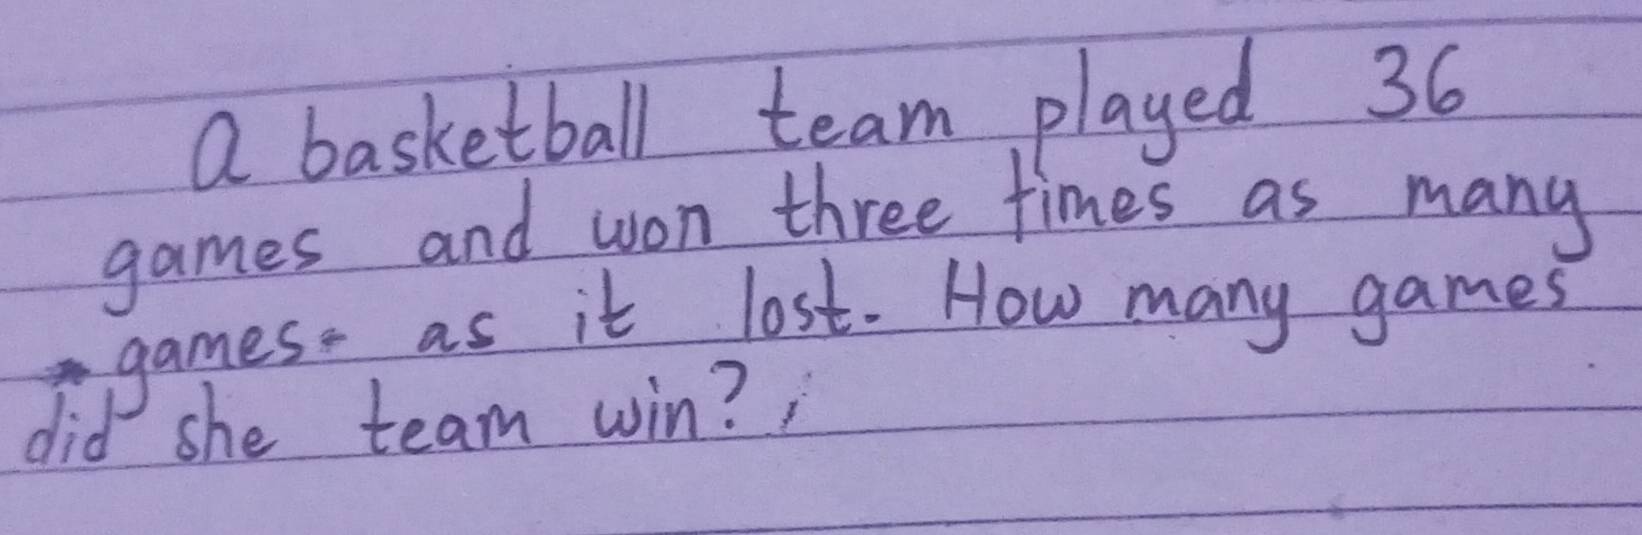 A basketball team played 36
games and won three times as many
games. as it lost. How many games
did she team win?